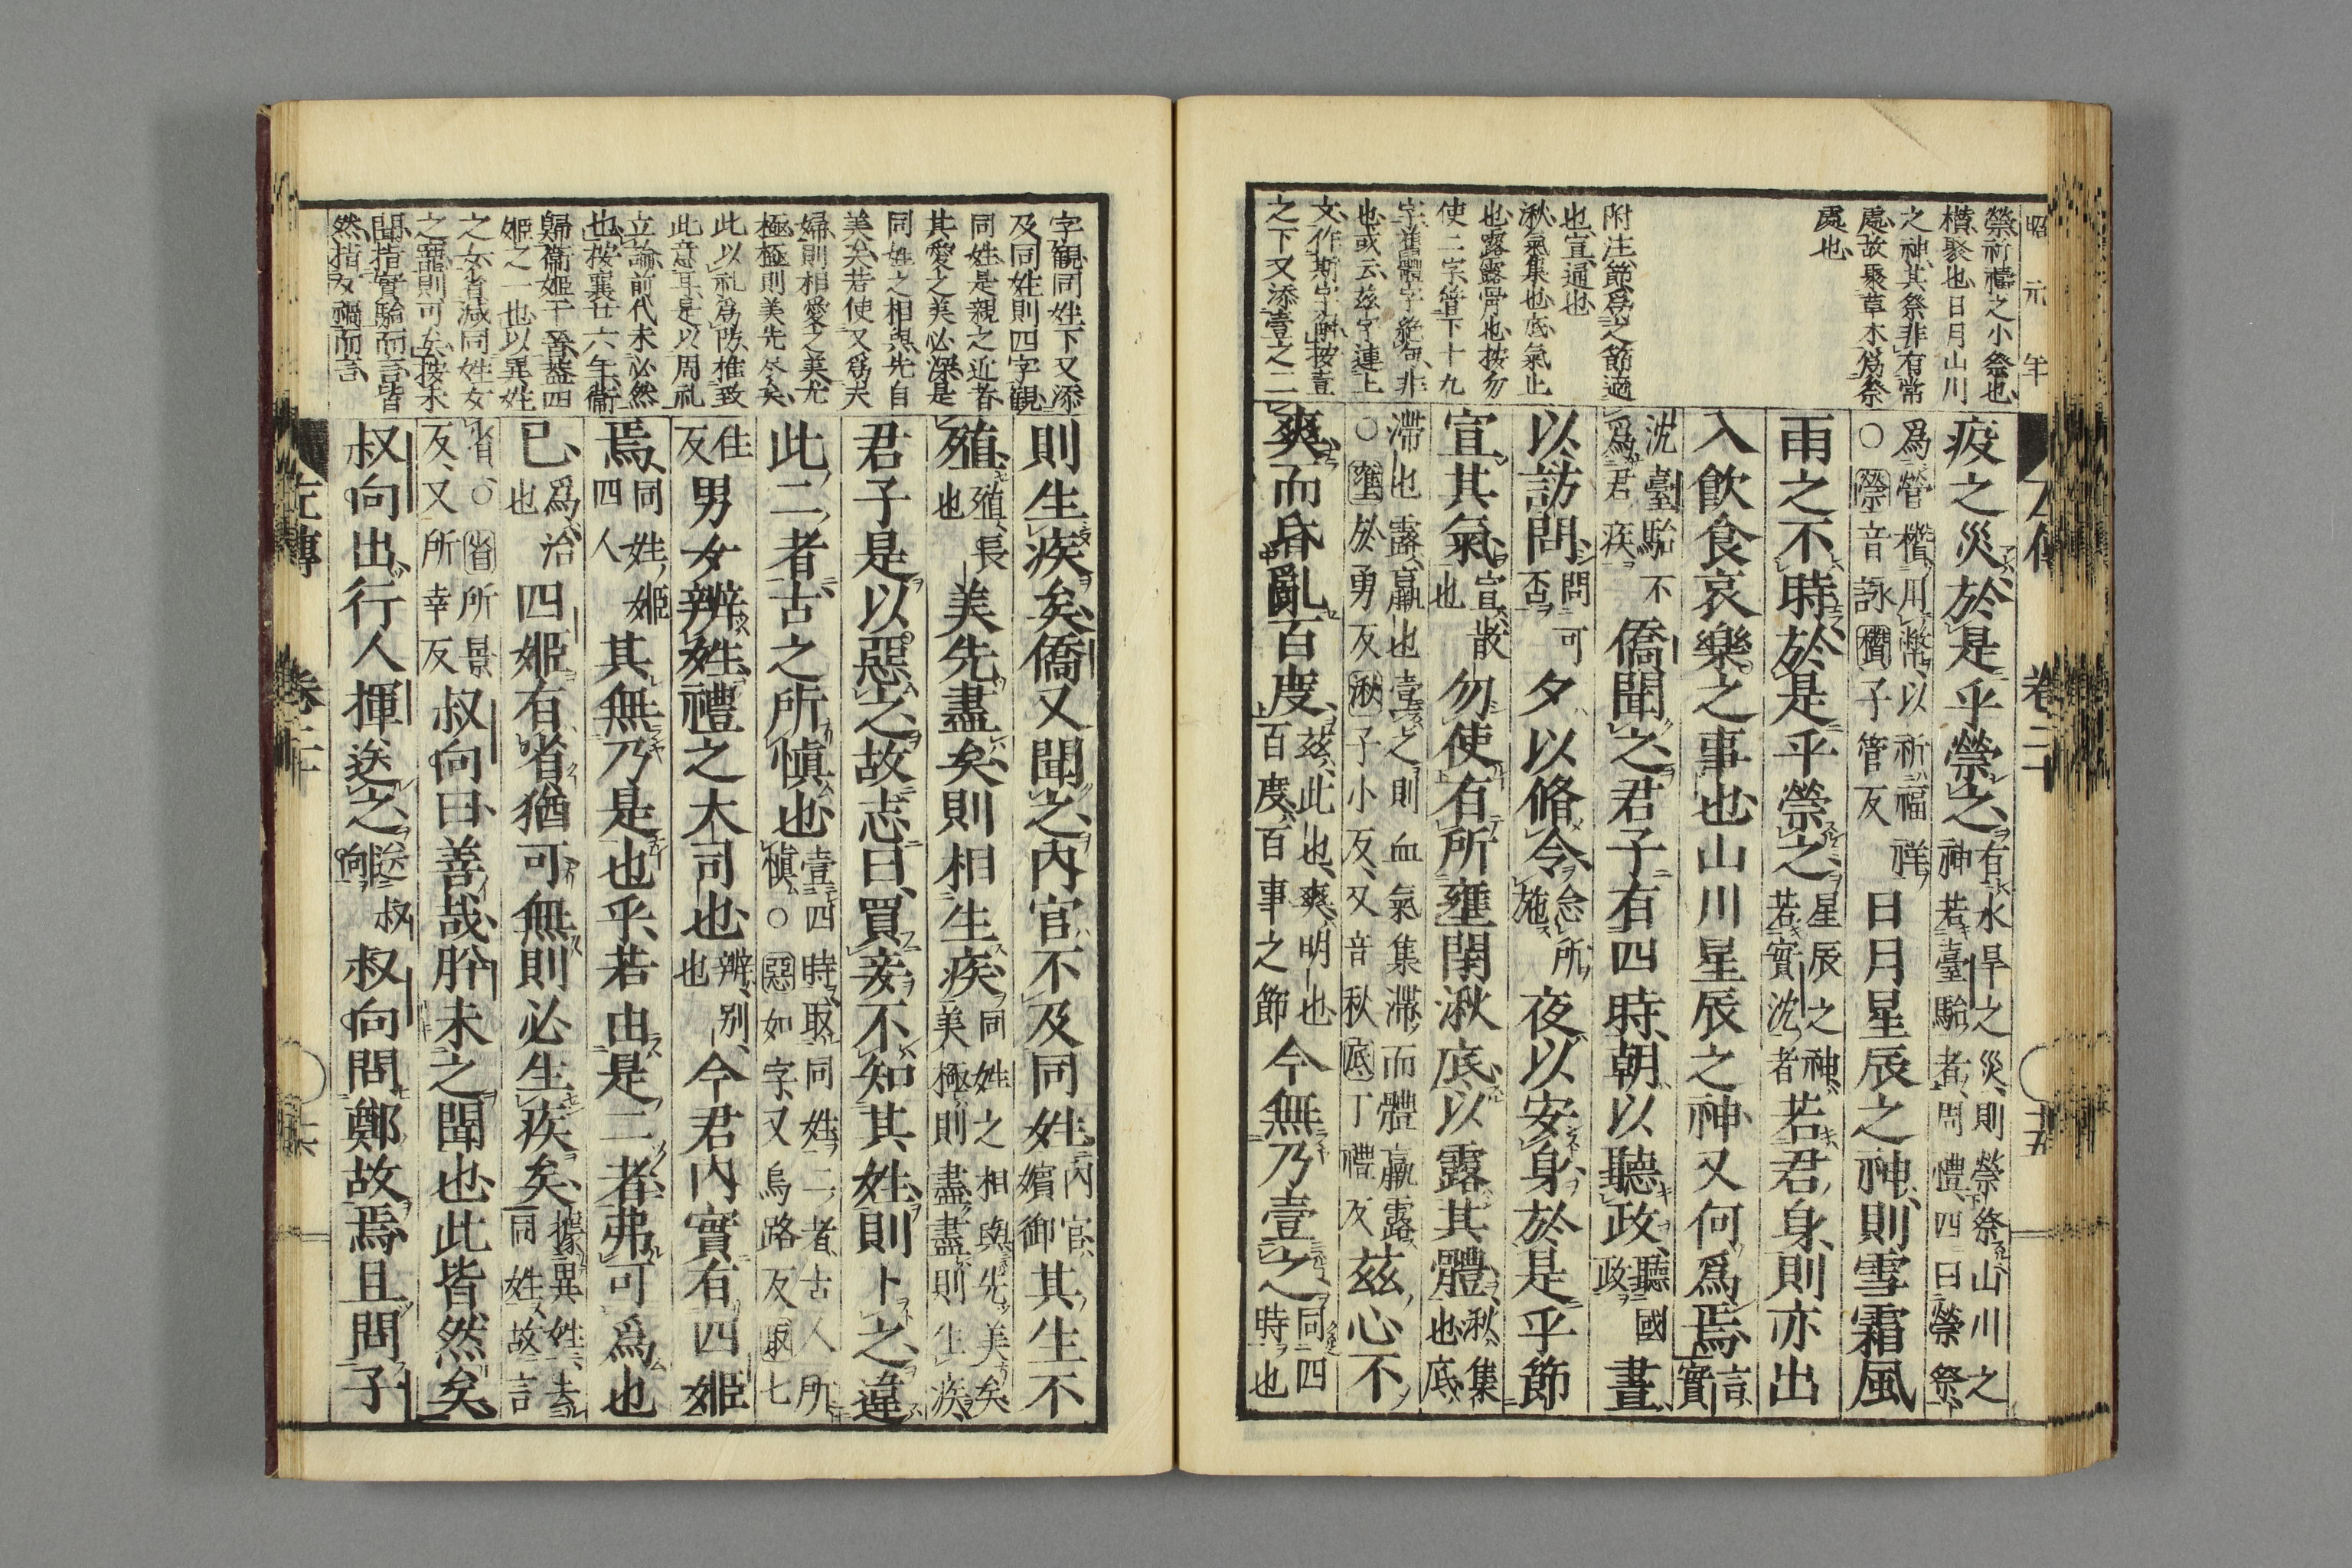 昭元年
禜祈禱之小祭也
欑聚也日月山川
之神其祭非有常
處故聚草木爲祭
處也
附注節爲之節適
也宣通也
湫氣集也底氣止
也露露骨也按勿
使二字管下十九
字舊體字絶句非
也或云兹字連上
之下又添壹之二
左傳 卷二十
疫之災於是乎禜之有水旱之災則禜祭山川之
神若臺駘者周禮四曰禜祭
爲營欑用幣以祈福祥
○禜音詠欑子管反
日月星辰之神則雪霜風
雨之不時於是乎禜之星辰之神
若實沈者若君身則亦出
入飲食哀樂之事也山川星辰之神又何爲焉言實
沈臺駘不
爲君疾僑聞之君子有四時朝以聽政聽國
政晝
以訪問問可
否夕以脩令念所
施夜以安身於是乎節
宣其氣宣散
也勿使有所壅閉湫底以露其體湫集
也底
滯也露羸也壹之則血氣集滯而體羸露
○壅於勇反湫子小反又音秋底丁禮反兹心不
爽而昏亂百度兹此也爽明也
百度百事之節今無乃壹之同四
時也
字觀同姓下又添
及同姓則四字觀
同姓是親之近者
其愛之美必深是
同姓之相與先自
美矣若使又爲夫
婦則相愛之美尤
極極則美先尽矣
此以礼爲防推致
此意耳是以周礼
立論前代未必然
也按襄廿六年衞
歸衞姬于晉蓋四
姬之一也以異姓
之女省減同姓女
之寵則可矣按未
聞指實驗而言皆
然指反禍而言
則生疾矣僑又聞之內官不及同姓內官
嬪御其生不
殖殖長
也美先盡矣則相生疾同姓之相與先美矣
美極則盡盡則生疾
君子是以惡之故志曰買妾不知其姓則卜之違
此二者古之所慎也壹四時取同姓二者古人所
慎○惡如字又烏路反取七
住
反男女辨姓禮之大司也辨別
也今君內實有四姬
焉同姓姬
四人其無乃是也乎若由是二者弗可爲也
已爲治
也四姬有省猶可無則必生疾矣據異姓去
同姓故言
省○省所景
反又所幸反叔向曰善哉肸未之聞也此皆然矣
叔向出行人揮送之送叔
向叔向問鄭故焉且問子
左傳 卷二十